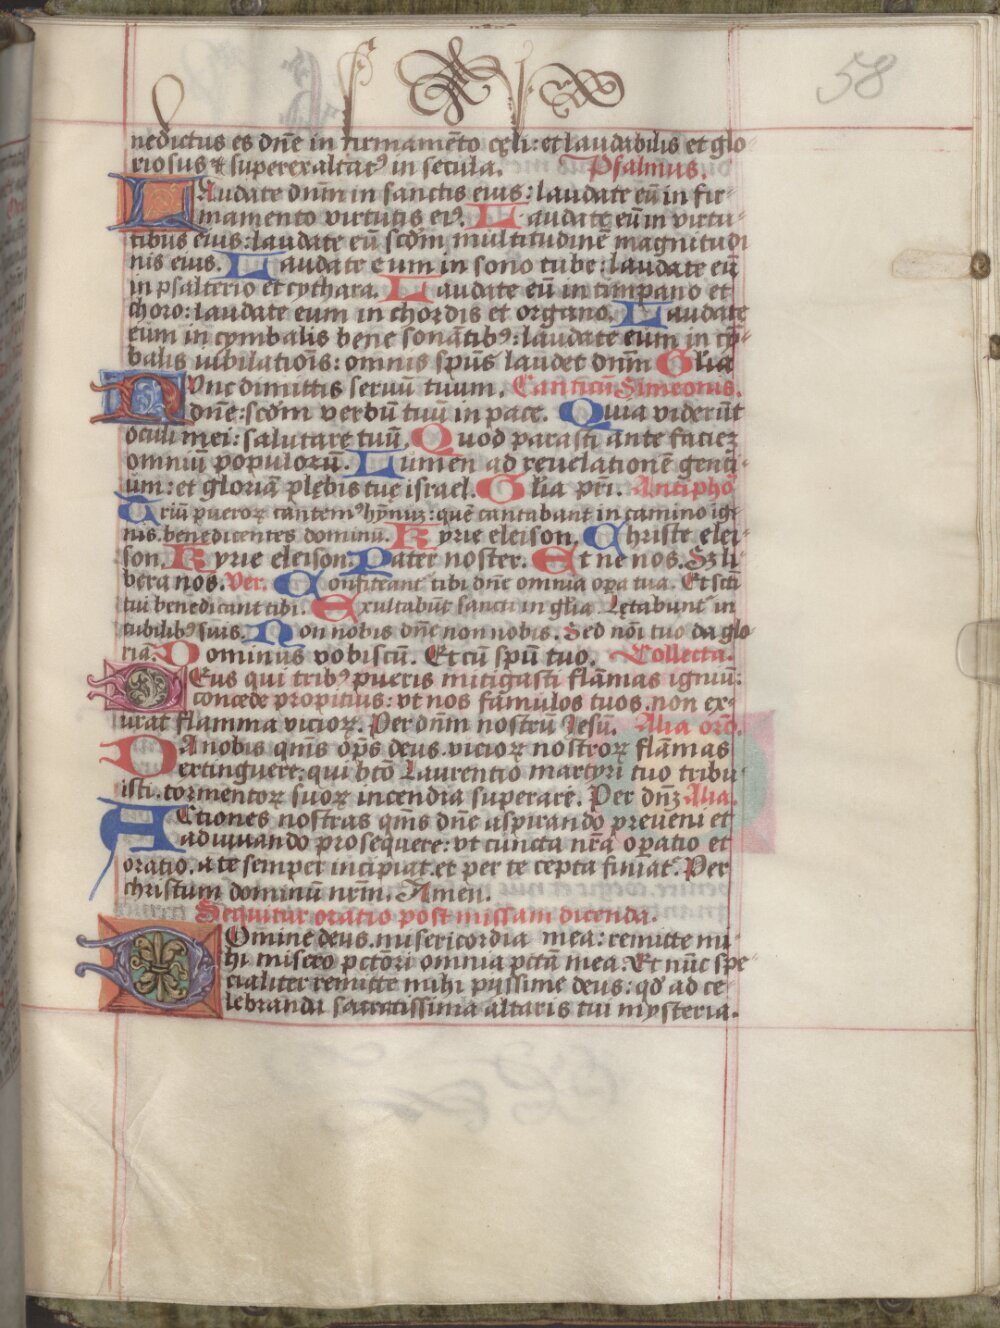 58
nedictus es dn̄e in firmamēto cęli: et laudabilis et glo-
riosus & superexaltatꝰ in secula. Psalmus.
LAudate dn̄m in sanctis eius: laudate eū in fir-
mamento virtutis eiꝰ. Laudate eū in virtu-
tibus eius: laudate eū scd̄m multitudinē magnitudi
nis eius. Laudate eum in sono tube: laudate eū
in psalterio et cythara. Laudate eū in timpano et
choro: laudate eum in chordis et organo. Laudate
eum in cymbalis bene sonātibꝰ: laudate eum in cȳ-
balis iubilatiōis: omnis spūs laudet dn̄m Gl̄ia
NUnc dimittis seruū tuum. Canticū Simeonis.
dn̄e: scd̄m verbū tuū in pace. Quia viderūt
oculi mei: salutare tuū. Quod parasti ante faciez
omniū populorū. Lumen ad reuelationē genti-
um: et gloriā plębis tuę israel. Gl̄ia pr̄i. Antipho
Triū pueroꝝ cantemꝰ hȳnuȝ: quē cantabant in camino ig-
nis, benedicentes dominū. Kyrie eleison. Christe elei-
son. Kyrie eleison. Pater noster. Et ne nos. Sȝ li
bera nos. Ver. Confiteant tibi dn̄e omnia oꝑa tua. Et sc̄ti
tui benedicant tibi. Exultabūt sancti in gl̄ia. Lętabunt in
cubilibꝰ suis. Non nobis dn̄e non nobis. Sed nōi tuo da glo-
riā. Dominus vobiscū. Et cū spū tuo. Collecta.
DEus qui tribꝰ pueris mitigasti flāmas igniū:
concede propitius: vt nos famulos tuos. non ex-
urat flamma vicioꝝ. Per dn̄m nostrū Jesū. Alia orō.
DA nobis qm̄s op̄s deus. vicioꝝ nostroꝝ flāmas
extinguere: qui btō Laurentio martyri tuo tribu-
isti. tormentoꝝ suoꝝ incendia superare. Per dn̄ȝ Alia.
ACtiones nostras qm̄s dn̄e aspirando preueni et
adiuuando prosequere: vt cuncta nr̄a oꝑatio et
oratio. a te semper incipiat. et per te cepta finiat. Per
christum dominū nr̄m. Amen.
Sequitur oratio post missam dicenda.
DOmine deus. misericordia mea: remitte mi-
hi misero pctōri omnia pctā mea. Et nūc spe-
cialiter remitte mihi pijssime deus: qđ ad ce-
lebrandi sacratissima altaris tui mysteria.